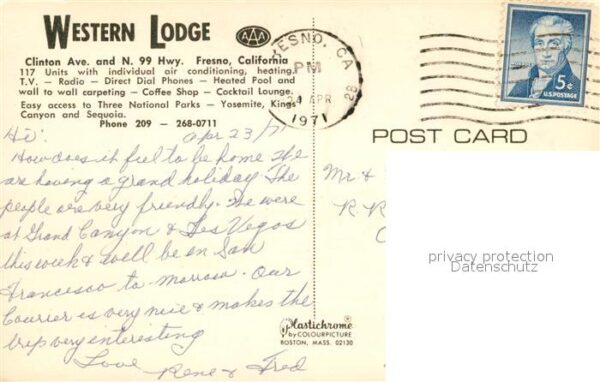 WESTERN LODGE
AAA
Clinton Ave. and N. 99 Hwy. Fresno, California
117 Units with individual air conditioning, heating.
T.V. - Radio - Direct Dial Phones - Heated Pool and
wall to wall carpeting - Coffee Shop - Cocktail Lounge.
Easy access to Three National Parks - Yosemite, Kings
Canyon and Sequoia.
Phone 209 - 268-0711
FRESNO, CA
PM
24 APR
1971
5¢
U.S. POSTAGE
POST CARD
Hi:
Apr 23/71
How does it feel to be home We
are having a grand holiday The
people are very friendly. We were
at Grand Canyon & Les Vegos
this week & will be in San
Francisco to morrow. Our
Courier is very nice & makes the
trip very interesting
Love
Rene & Fred
Mr &
R.R
privacy protection
Datenschutz
Plastichrome ®
by COLOURPICTURE
BOSTON, MASS. 02130